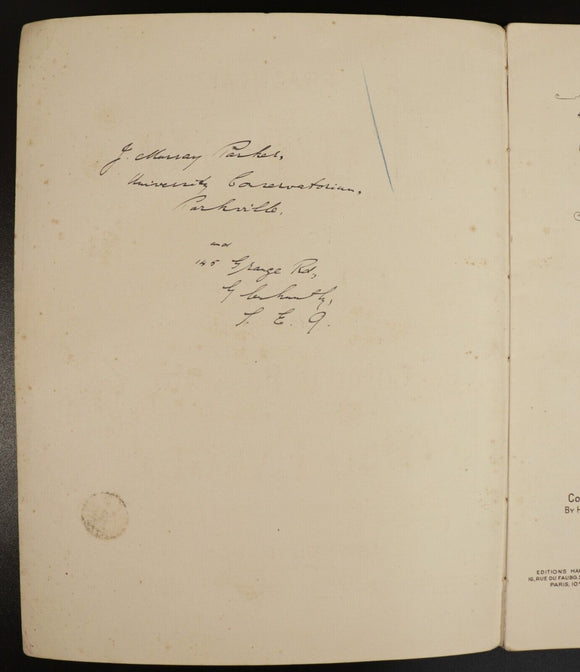 J. Murray Parker,
University Conservatorium,
Parkville.
and
145 Grange Rd,
Glenhuntly,
S. E. 9.
Co
BY H
EDITIONS MA
16, RUE DU FAUBG. S
PARIS, 10